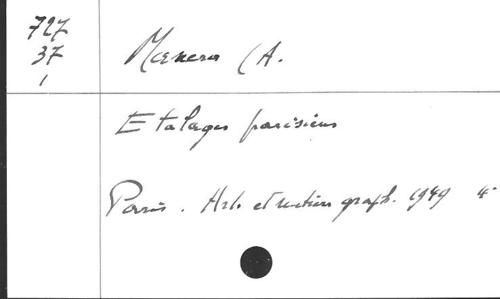 727
37
1
Manera (A.
Etalages parisiens
Paris. Arts et métiers graph. 1949 4°